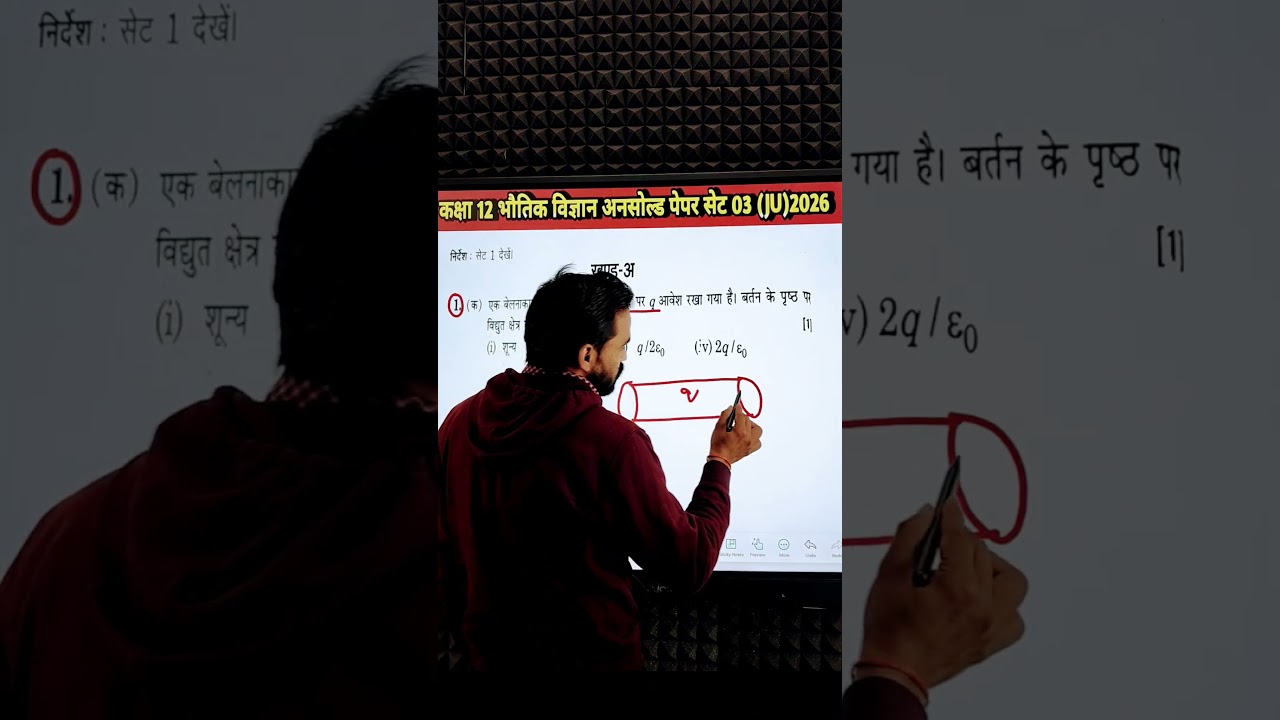 कक्षा 12 भौतिक विज्ञान अनसोल्ड पेपर सेट 03 (JU)2026
निर्देश : सेट 1 देखें।
खण्ड-अ
1. (क) एक बेलनाका पर q आवेश रखा गया है। बर्तन के पृष्ठ पर
विद्युत क्षेत्र [1]
(i) शून्य q/2ε0 (iv) 2q/ε0
q
More
Undo
निर्देश : सेट 1 देखें।
1. (क) एक बेलनाका गया है। बर्तन के पृष्ठ पर
विद्युत क्षेत्र [1]
(i) शून्य v) 2q/ε0